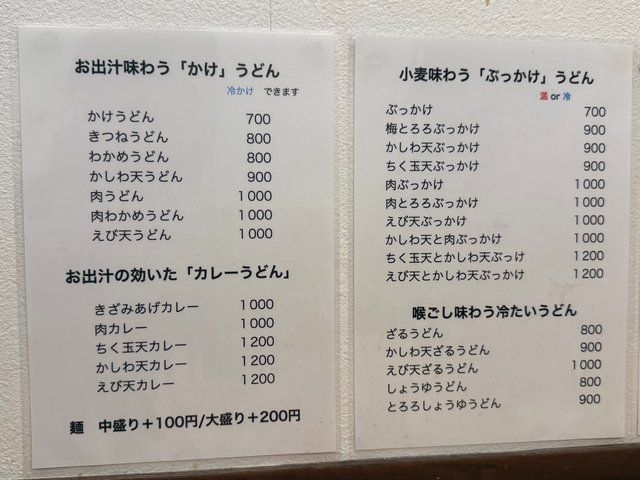 お出汁味わう「かけ」うどん
冷かけ できます
かけうどん 700
きつねうどん 800
わかめうどん 800
かしわ天うどん 900
肉うどん 1000
肉わかめうどん 1000
えび天うどん 1000
お出汁の効いた「カレーうどん」
きざみあげカレー 1000
肉カレー 1000
ちく玉天カレー 1200
かしわ天カレー 1200
えび天カレー 1200
麺 中盛り＋100円/大盛り＋200円
小麦味わう「ぶっかけ」うどん
温 or 冷
ぶっかけ 700
梅とろろぶっかけ 900
かしわ天ぶっかけ 900
ちく玉天ぶっかけ 900
肉ぶっかけ 1000
肉とろろぶっかけ 1000
えび天ぶっかけ 1000
かしわ天と肉ぶっかけ 1000
ちく玉天とかしわ天ぶっけ 1200
えび天とかしわ天ぶっかけ 1200
喉ごし味わう冷たいうどん
ざるうどん 800
かしわ天ざるうどん 900
えび天ざるうどん 1000
しょうゆうどん 800
とろろしょうゆうどん 900